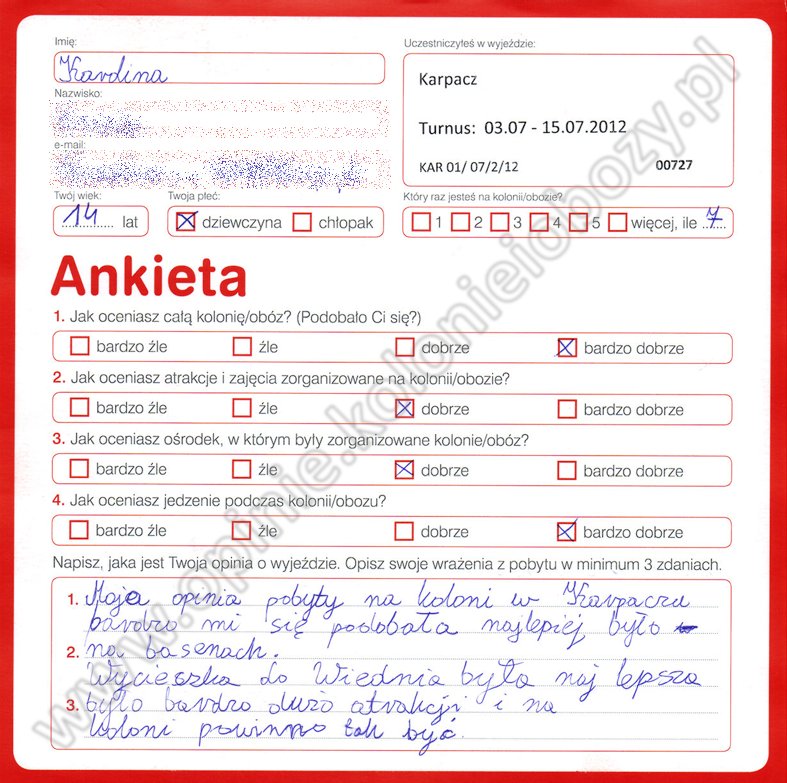 Imię:
Karolina
Uczestniczyłeś w wyjeździe:
Karpacz
Turnus: 03.07 - 15.07.2012
KAR 01/ 07/2/12 00727
Nazwisko:
e-mail:
Twój wiek:
14 lat
Twoja płeć:
dziewczyna chłopak
Który raz jesteś na kolonii/obozie?
1 2 3 4 5 więcej, ile 7
Ankieta
1. Jak oceniasz całą kolonię/obóz? (Podobało Ci się?)
bardzo źle źle dobrze bardzo dobrze
2. Jak oceniasz atrakcje i zajęcia zorganizowane na kolonii/obozie?
bardzo źle źle dobrze bardzo dobrze
3. Jak oceniasz ośrodek, w którym były zorganizowane kolonie/obóz?
bardzo źle źle dobrze bardzo dobrze
4. Jak oceniasz jedzenie podczas kolonii/obozu?
bardzo źle źle dobrze bardzo dobrze
Napisz, jaka jest Twoja opinia o wyjeździe. Opisz swoje wrażenia z pobytu w minimum 3 zdaniach.
1. Moja opinia pobyty na koloni w Karpaczu
bardzo mi się podobała najlepiej było
2. na basenach.
Wycieszka do Wiednia była naj lepsza
3. było bardzo dużo atrakcji i na
koloni powinno tak być.
www.opinie.kolonieiobozy.pl